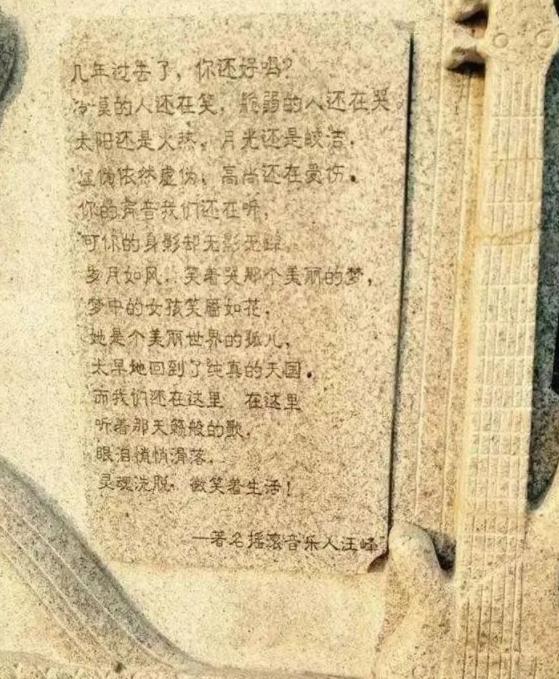 几年过去了，你还好吗？
冷漠的人还在笑，脆弱的人还在哭
太阳还是火热，月光还是皎洁，
虚伪依然虚伪，高尚还在受伤。
你的声音我们还在听，
可你的身影却无影无踪。
岁月如风，笑着哭那个美丽的梦，
梦中的女孩笑靥如花，
她是个美丽世界的孤儿，
太早地回到了纯真的天国。
而我们还在这里 在这里
听着那天籁般的歌，
眼泪悄悄滑落，
灵魂洗脱，微笑着生活！
—著名摇滚音乐人汪峰